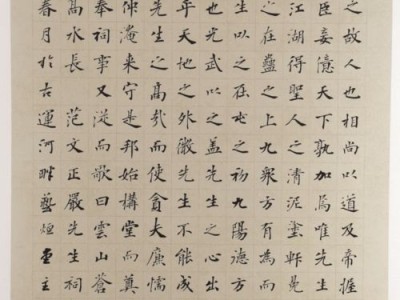 之故人也相尚以道及帝握
臣妾億天下孰加焉唯先生
江湖得聖人之清泥塗軒冕
之在蠱之上九眾方有為而
生以之在屯之初九陽德方
也光武以之蓋先生之心出
乎天地之外微先生不能成
先生之高哉而使貪夫廉懦
仲淹來守是邦始構堂而奠
奉祠事又從而歌曰雲山蒼
高水長 范文正嚴先生祠
春月於古運河畔藝煙主